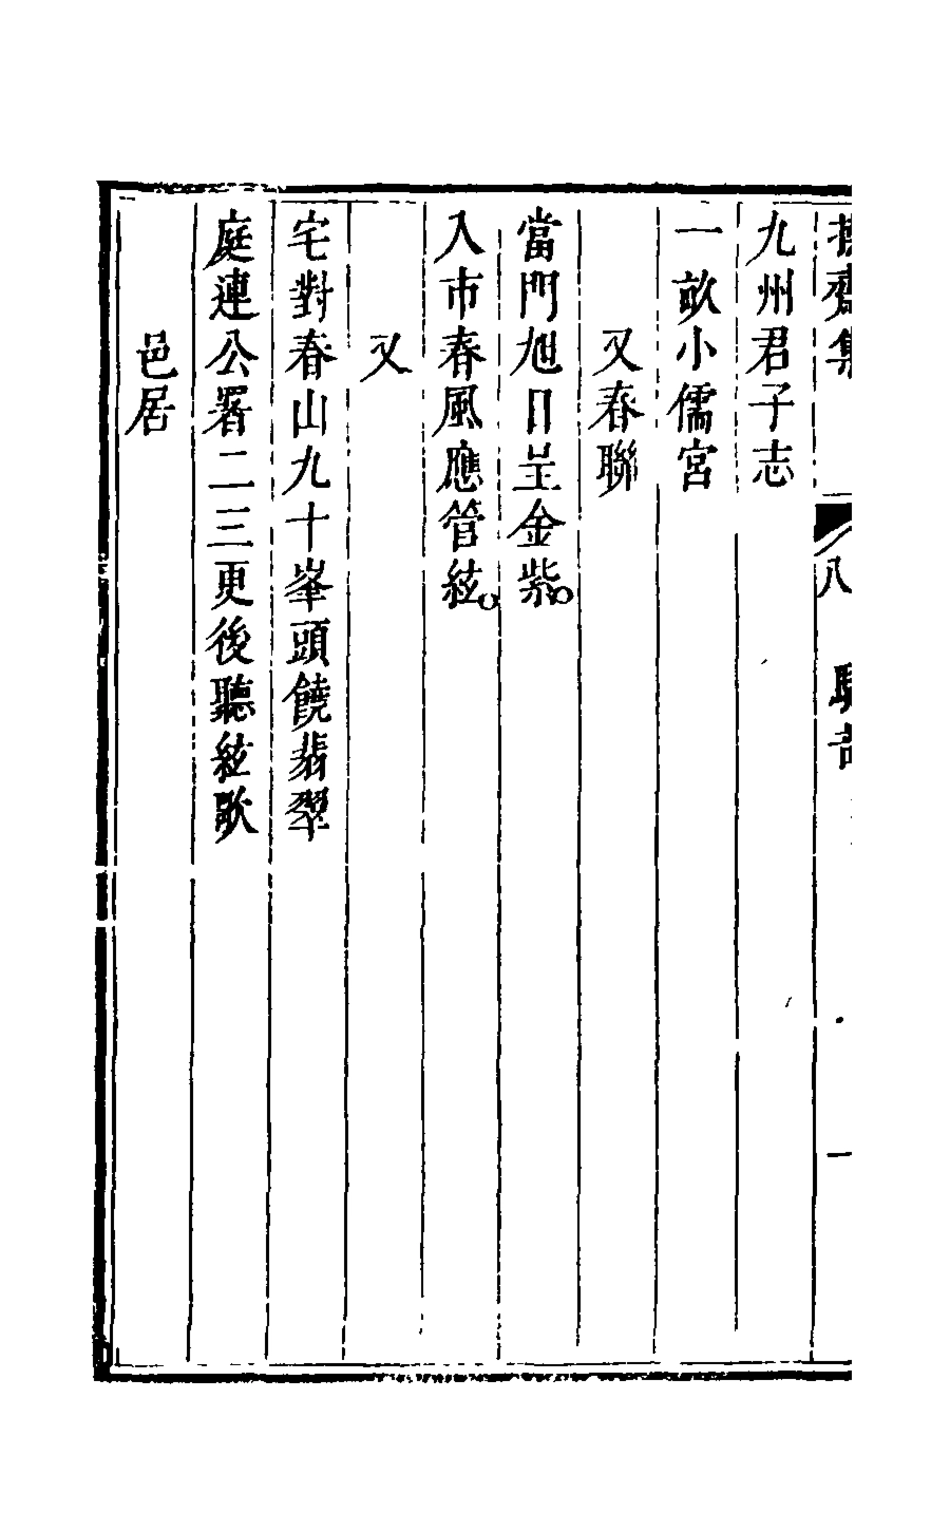 九州君子志
一畝小儒宮
又春聯
當門旭日呈金紫
入市春風應管絃
又
宅對春山九十峯頭饒翡翠
庭連公署二三更後聽絃歌
邑居
齋集
八